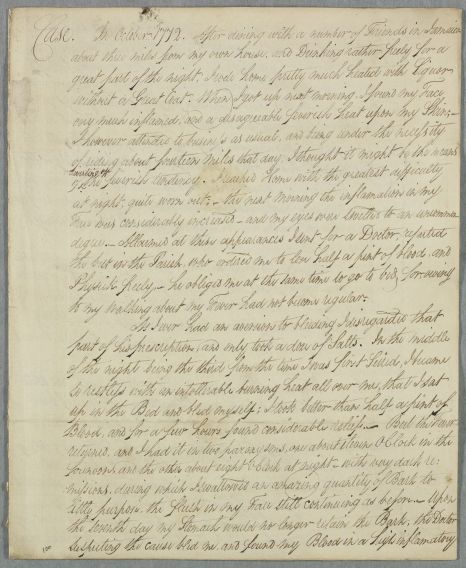 Case. In October 1772. After dining with a number of Friends in Jamaica
about three miles from my own house, and Drinking rather freely for a
great part of the night, I rode home pretty much heated with Liquor
without a Great Coat. When I got up next morning I found my Face
very much inflamed, and a disagreeable feverish heat upon my Skin;
I however attended to business as usual, and being under the necessity
of riding about fourteen miles that day, I thought it might be the means
of the feverish tendency. I reached Home with the greatest difficulty
at night, quite worn out; the next morning the inflamation in my
Face was considerably increased and my eyes were swelled to an uncommon
degree. Allarmed at these appearances I sent for a Doctor, reputed
the best in the Parish, who ordered me to lose half a pint of blood, and
Physick freely, he obliged me at the same time to go to bed, for owing
to my walking about my Fever had not become regular.
As I ever had an aversion to bleeding I disregarded that
part of his prescription, and only took a dose of Salts. In the middle
of the night being the third from the time I was first Seized, I became
so restless with an intollerable burning heat all over me, that I sat
up in the Bed and bled myself; I took better than half a pint of
Blood, and for a few hours found considerable relief. But the Fever
returned, and I had it in two paroxysms, one about eleven O'Clock in the
forenoon, and the other about eight O'Clock at night with very dark re:
missions, during which I swallowed an amazing quantity of Bark to
little purpose, the flush in my Face still continuing as before. Upon
the seventh day my Stomach would no longer retain the Bark, the Doctor
suspecting the cause bled me, and found my Blood in a high inflammatory